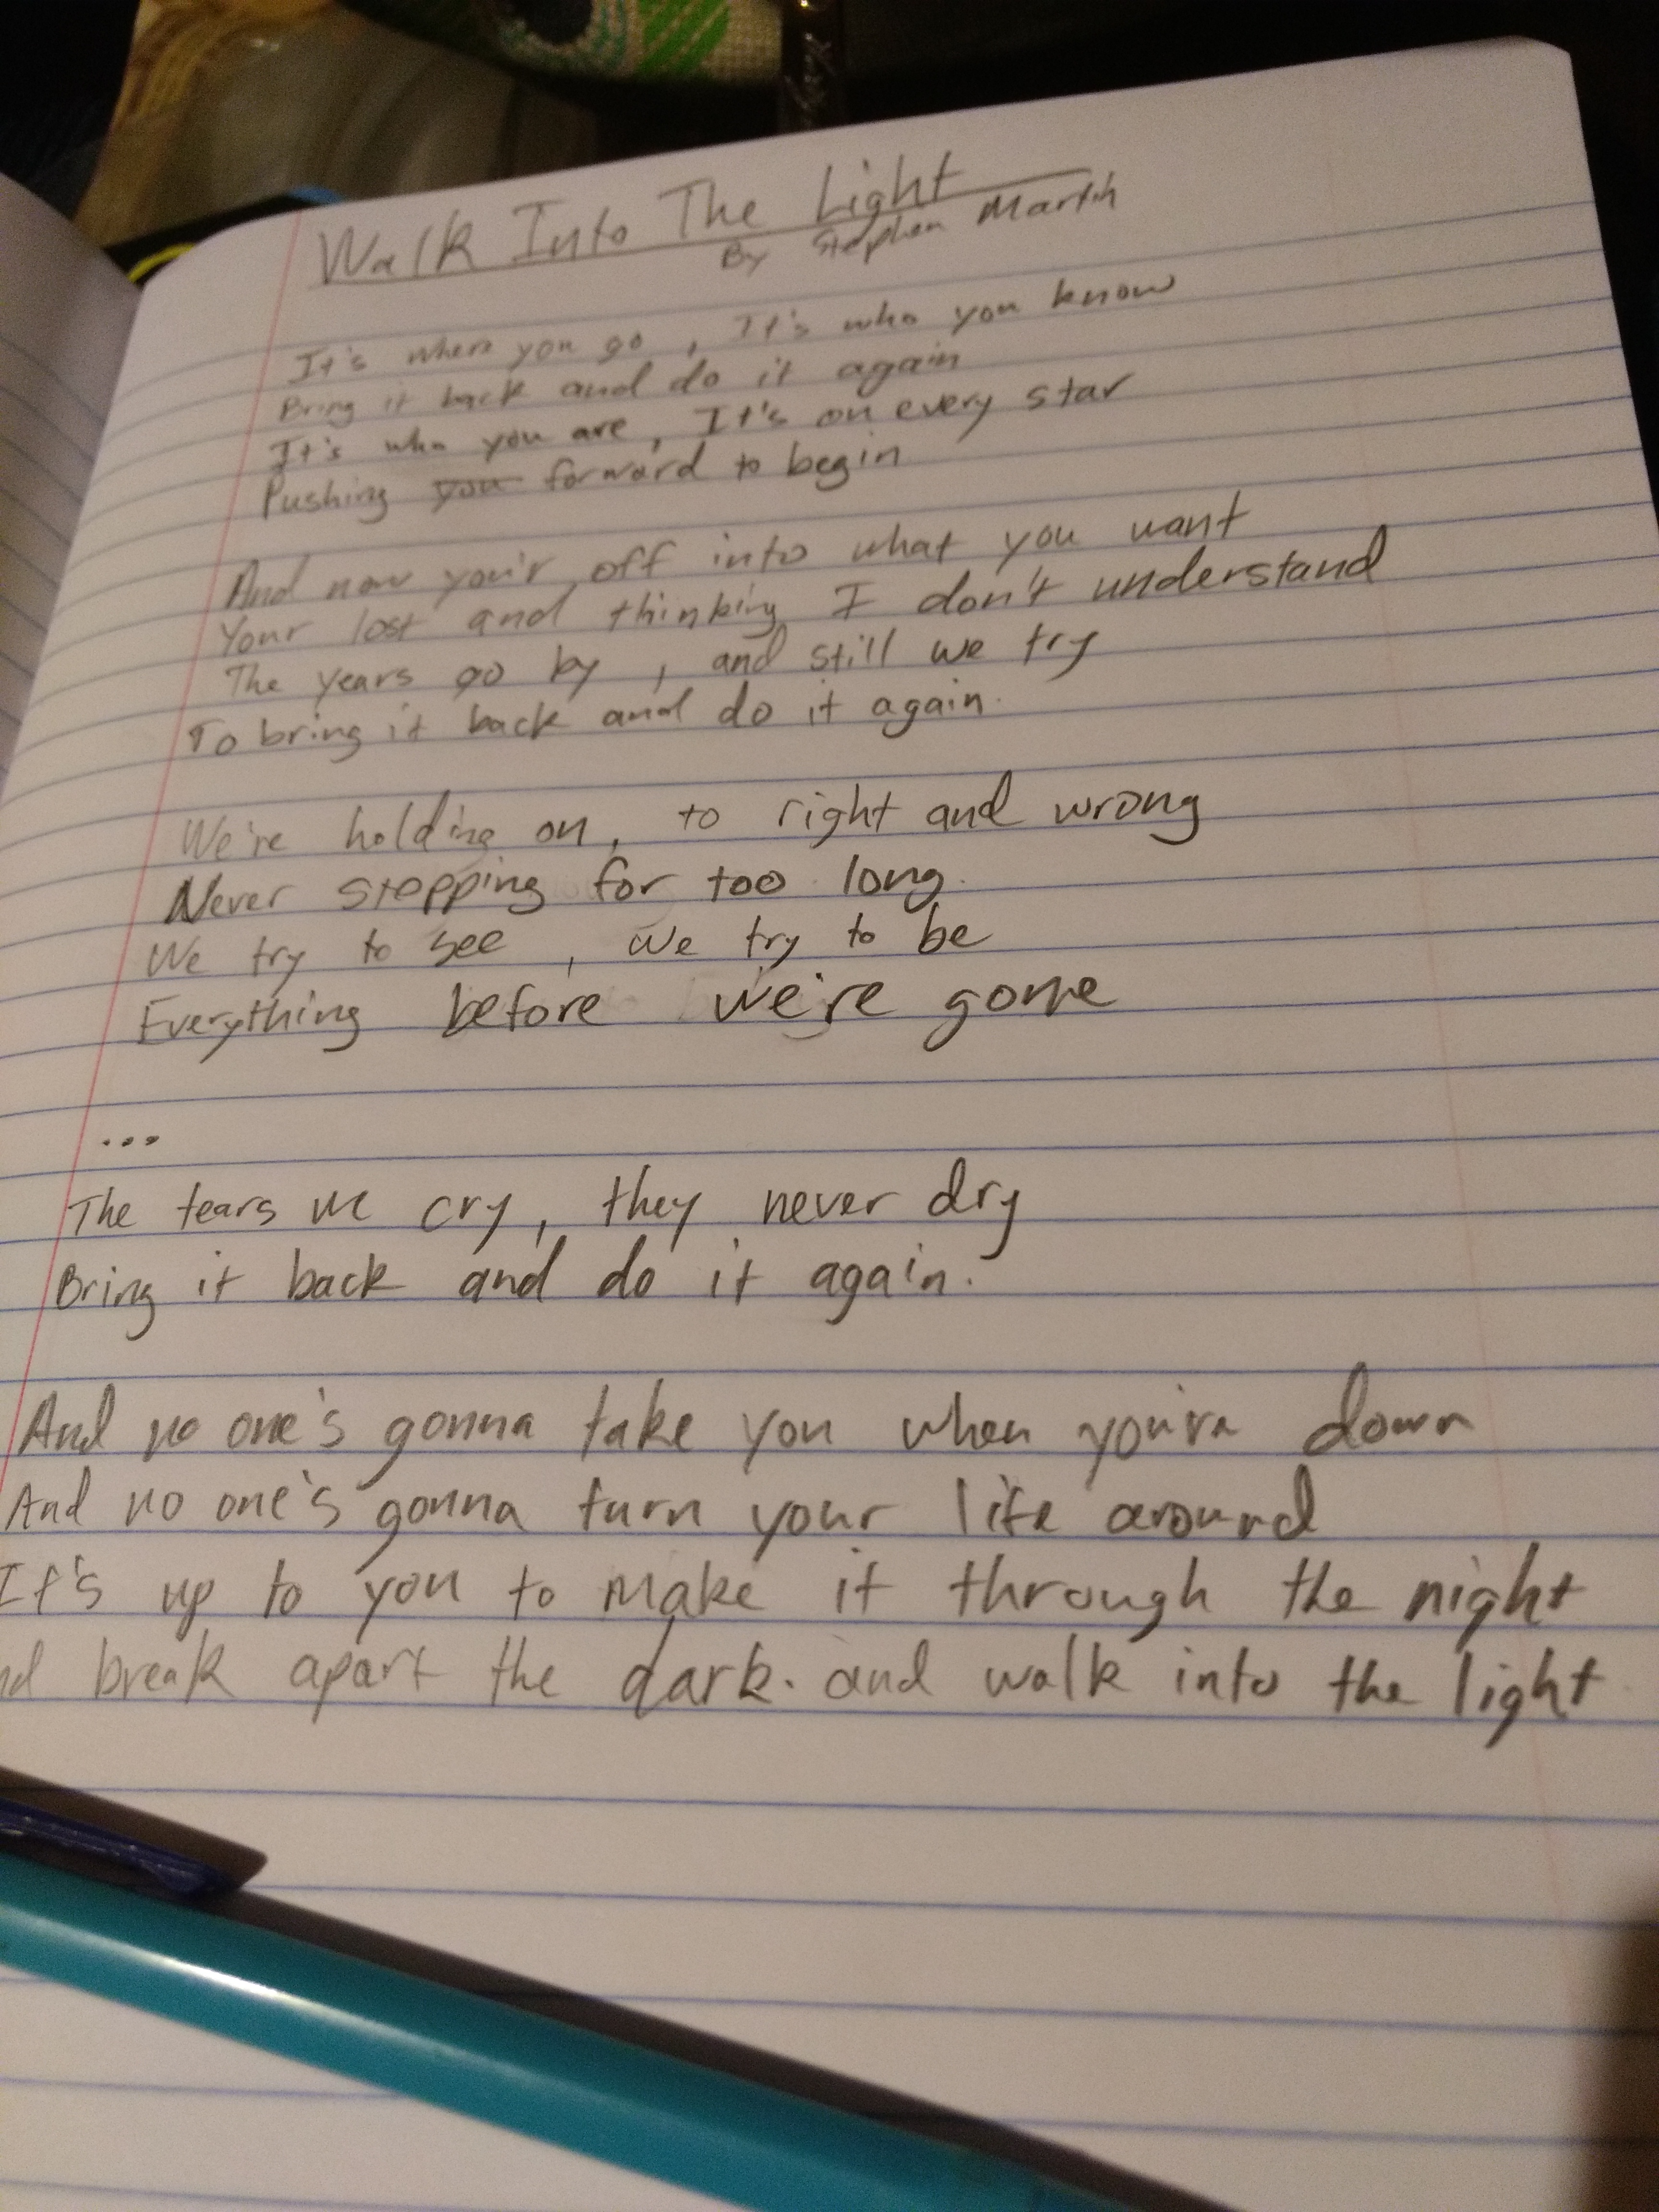 Walk Into The Light
By Stephen Martin
It's where you go , It's who you know
Bring it back and do it again
It's who you are, It's on every star
Pushing you forward to begin
And now you'r off into what you want
Your lost and thinking I don't understand
The years go by , and still we try
To bring it back and do it again.
We're holding on, to right and wrong
Never stopping for too long.
We try to see , we try to be
Everything before we're gone
...
The tears we cry, they never dry
Bring it back and do it again.
And no one's gonna take you when you're down
And no one's gonna turn your life around
It's up to you to make it through the night
nd break apart the dark. and walk into the light